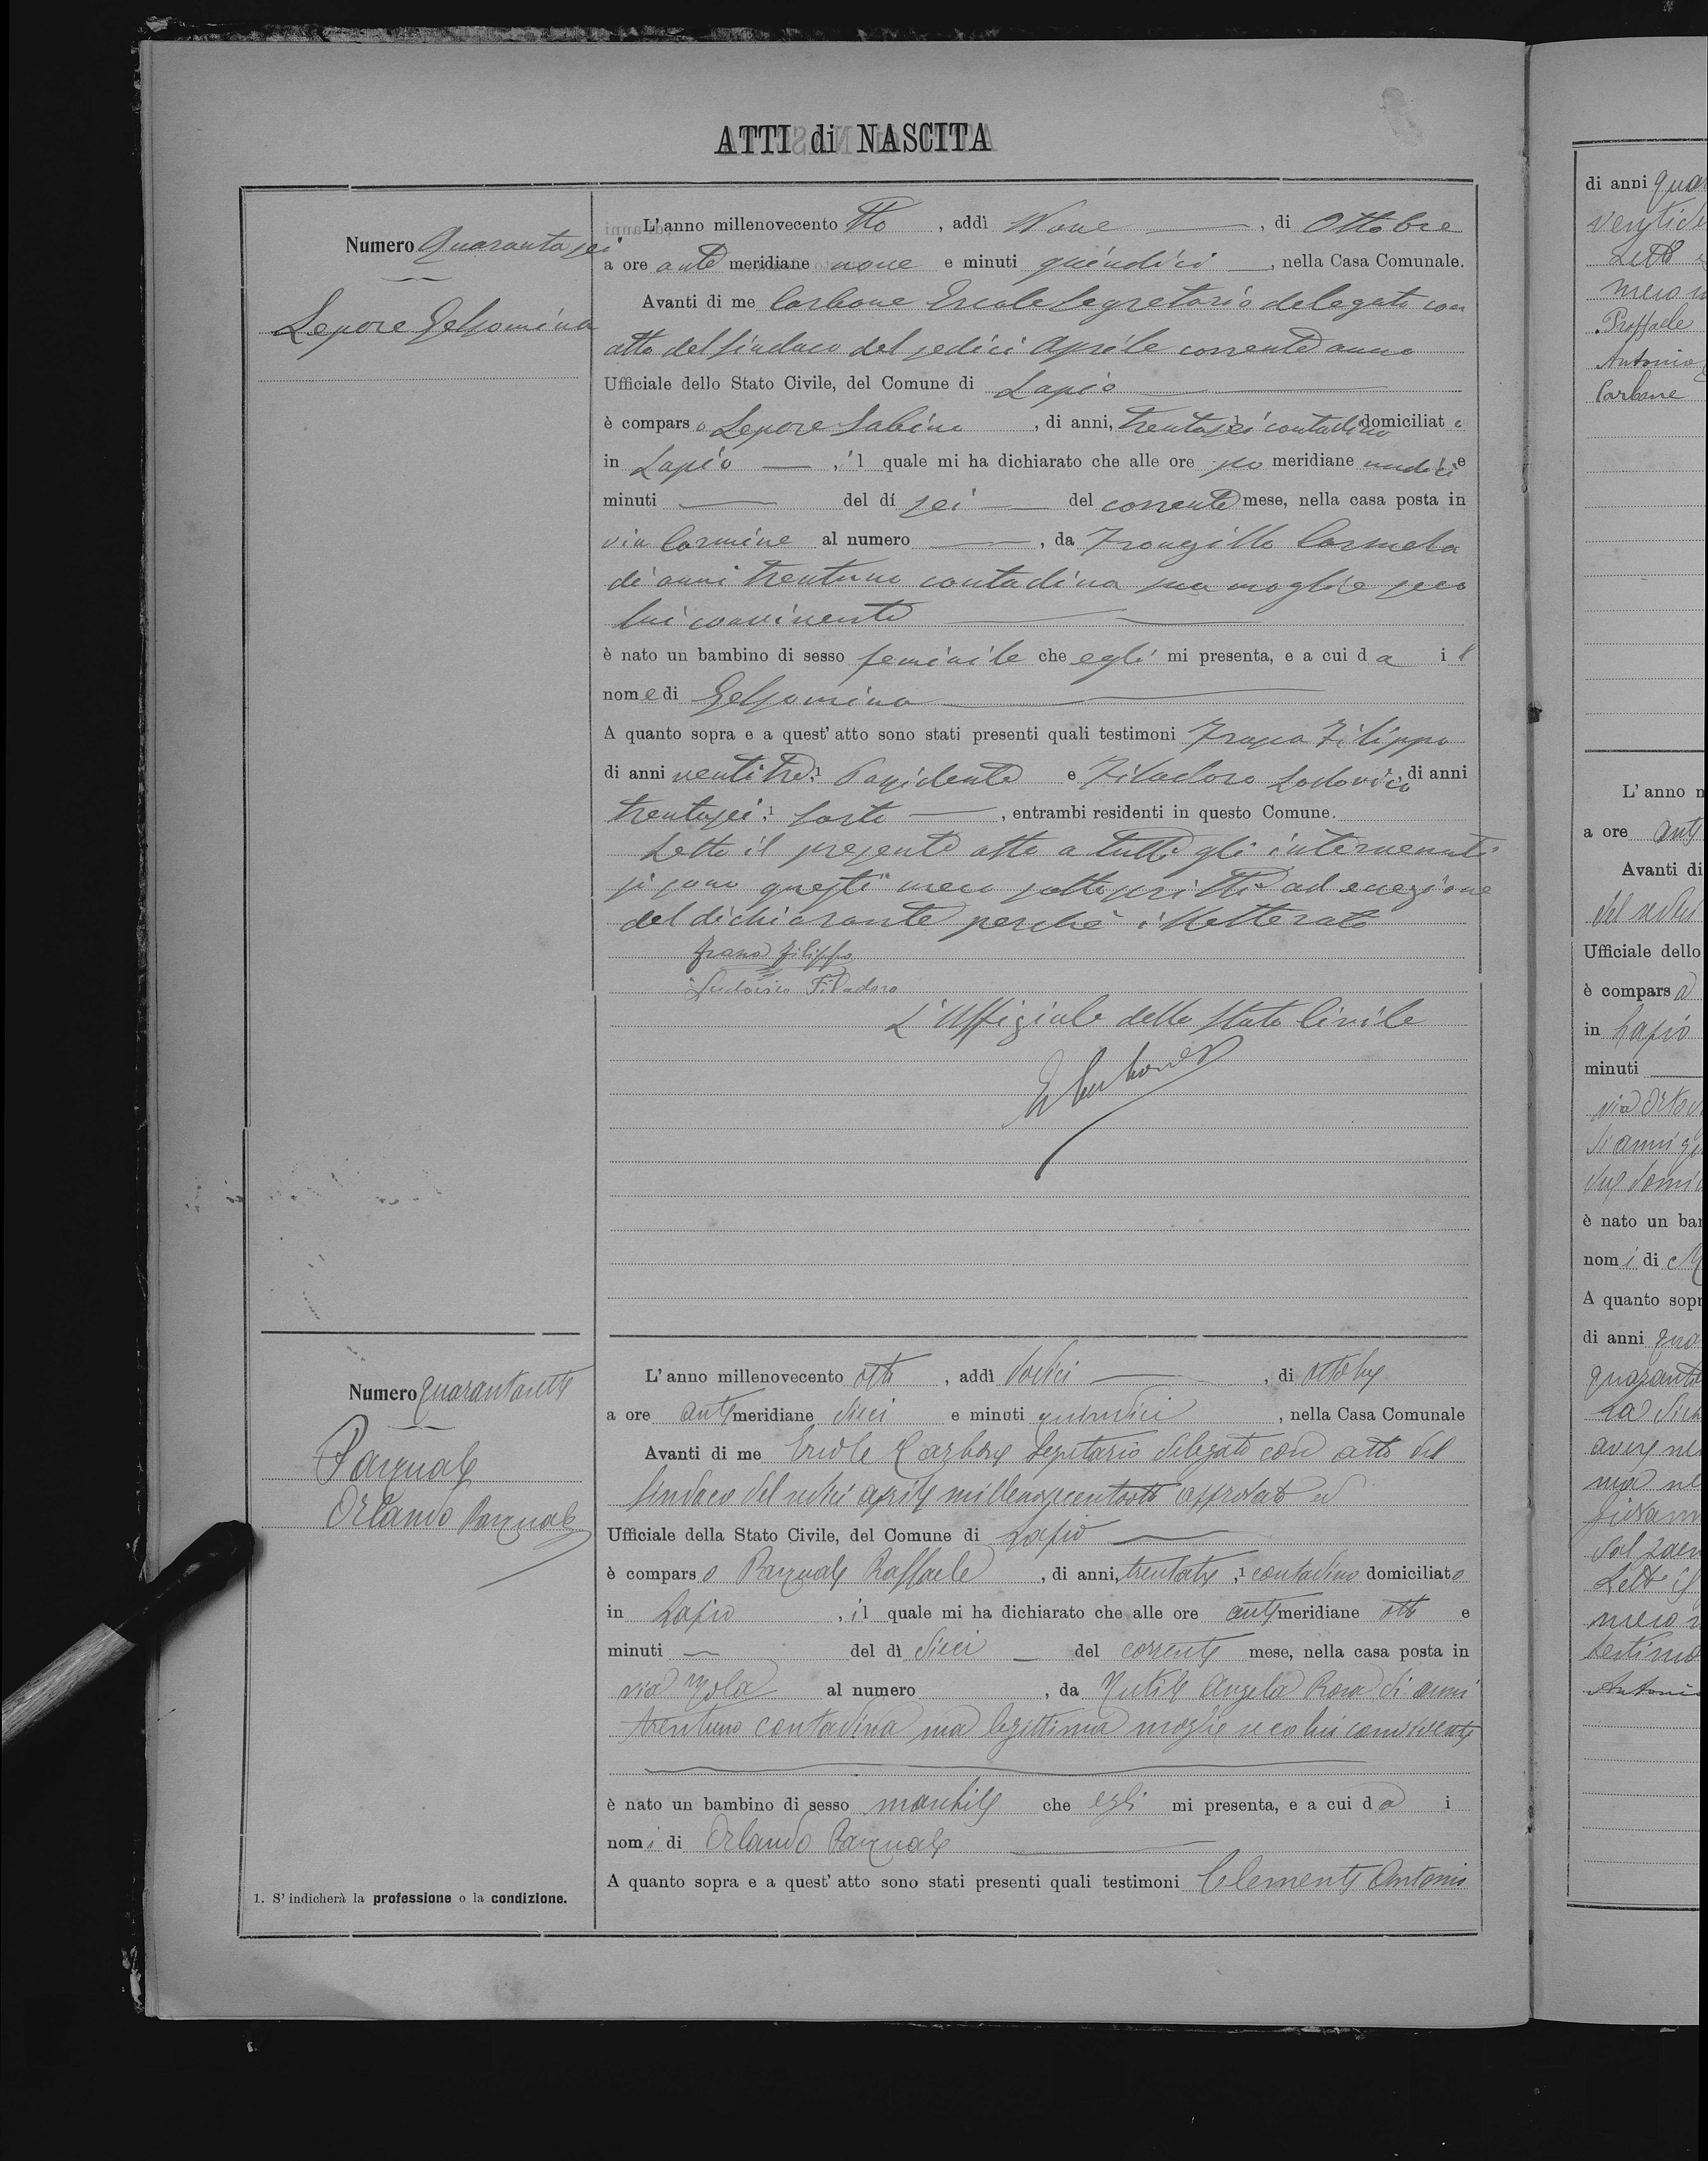 ATTI di NASCITA
Numero Quarantasei
Lepore Gelsomina
L'anno millenovecento otto, addì Nove, di Ottobre
a ore ante meridiane nove e minuti quindici, nella Casa Comunale.
Avanti di me Carbone Ercole Segretario delegato con
atto del Sindaco del sedici Aprile corrente anno
Ufficiale dello Stato Civile, del Comune di Lapio
è comparso Lepore Sabino, di anni, trentasei 1 contadino domiciliato
in Lapio, il quale mi ha dichiarato che alle ore po meridiane undici e
minuti del dí sei del corrente mese, nella casa posta in
via Carmine al numero, da Frongillo Carmela
di anni trentuno contadina sua moglie seco
lui convivente
è nato un bambino di sesso feminile che egli mi presenta, e a cui da il
nome di Gelsomina
A quanto sopra e a quest' atto sono stati presenti quali testimoni Filippo
di anni ventitre, 1 Possidente e Filadoro Lodovico, di anni
trentasei, 1 Sarto, entrambi residenti in questo Comune.
Letto il presente atto a tutti gli intervenuti
si sono questi meco sottoscritti ad eccezione
del dichiarante perchè illetterato
Filippo
Ludovico Filadoro
L'Uffiziale dello Stato Civile
E Carbone
Numero quarantasette
Pasquale
Orlando Pasquale
L'anno millenovecento otto, addì dodici, di ottobre
a ore ante meridiane dieci e minuti quindici, nella Casa Comunale
Avanti di me Ercole Carbone Segretario delegato con atto del
Sindaco del sedici aprile millenovecentootto approvato ed
Ufficiale della Stato Civile, del Comune di Lapio
è comparso Pasquale Raffaele, di anni, trentatre, 1 contadino domiciliato
in Lapio, il quale mi ha dichiarato che alle ore ante meridiane otto e
minuti del dì dieci del corrente mese, nella casa posta in
via al numero, da Angela Rosa di anni
trentuno contadina sua legittima moglie seco lui convivente
è nato un bambino di sesso maschile che egli mi presenta, e a cui da i
nomi di Orlando Pasquale
A quanto sopra e a quest' atto sono stati presenti quali testimoni Clemente Antonio
1. S' indicherà la professione o la condizione.
di anni
Letto
meco
Raffaele
Antonio
Carbone
L' anno
a ore ante
Avanti di
Ufficiale dello
è comparso
in Lapio
minuti
di anni
è nato un
nomi di
A quanto
di anni
quaranta
Antonio